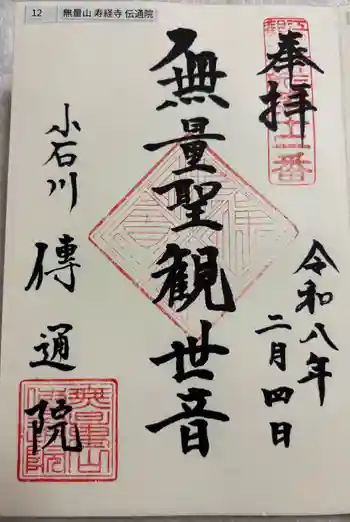 12 無量山 寿経寺 伝通院
奉拝
令和八年
二月四日
無量聖観世音
小石川
傳通院